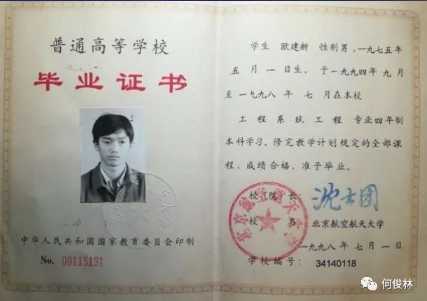 普通高等学校
毕业证书
中华人民共和国国家教育委员会印制
No. 00115191
学生 欧建新 性别男,一九七五
年 五 月 一 日生,于一九九四年 九月
至一九九八年 七 月在本校
工程系统工程 专业四年制
本科学习,修完教学计划规定的全部课
程,成绩合格,准予毕业。
校(院)长:
校 名: 北京航空航天大学
一九九八年 七 月 一 日
学校编号: 34140118
何俊林